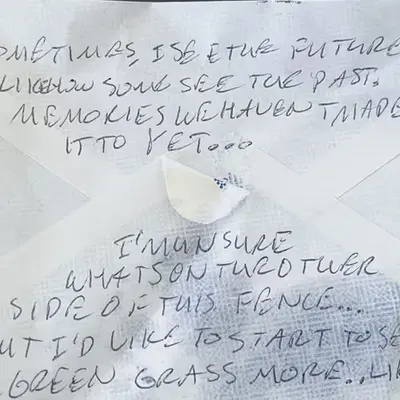 OMETIMES, I SEE THE FUTURE
LIKE HOW SOME SEE THE PAST.
MEMORIES WE HAVEN'T MADE
IT TO YET...
I'M UNSURE
WHATS ON THE OTHER
SIDE OF THIS FENCE...
UT I'D LIKE TO START TO SE
GREEN GRASS MORE.. LI